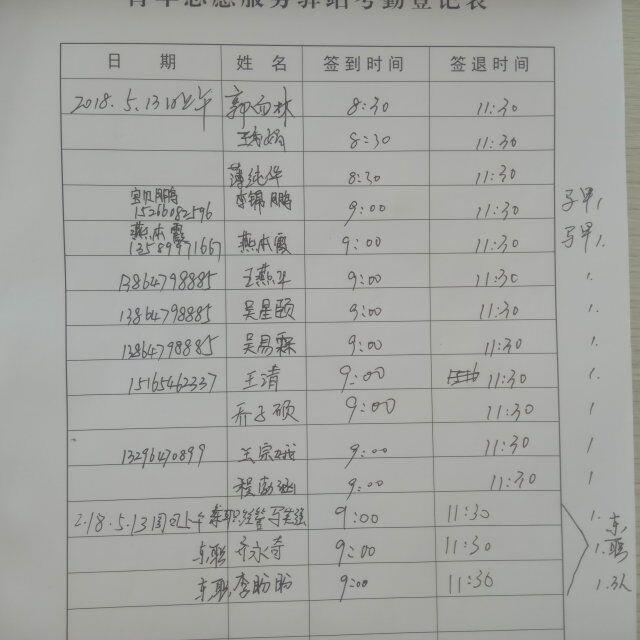 青年志愿服务驿站考勤登记表
日 期 姓 名 签到时间 签退时间
2018.5.13日上午 8:30 11:30
8:30 11:30
薄纯华 8:30 11:30
宝贝鹏
15266082596 李锦鹏 9:00 11:30 1,
燕本霞
13589971667 燕本霞 9:00 11:30 1.
13864798885 王燕华 9:00 11:30 1.
13864798885 吴星颐 9:00 11:30 1.
13864798885 吴易霖 9:00 11:30 1.
15165462337 王清 9:00 11:30 1.
乔子硕 9:00 11:30 1
13296470899 王宗 9:00 11:30 1
程 9:00 11:30 1
2.18.5.13 上午 9:00 11:30 1. 东
东职 齐永奇 9:00 11:30 1. 职
东职 李盼盼 9:00 11:30 1. 3人